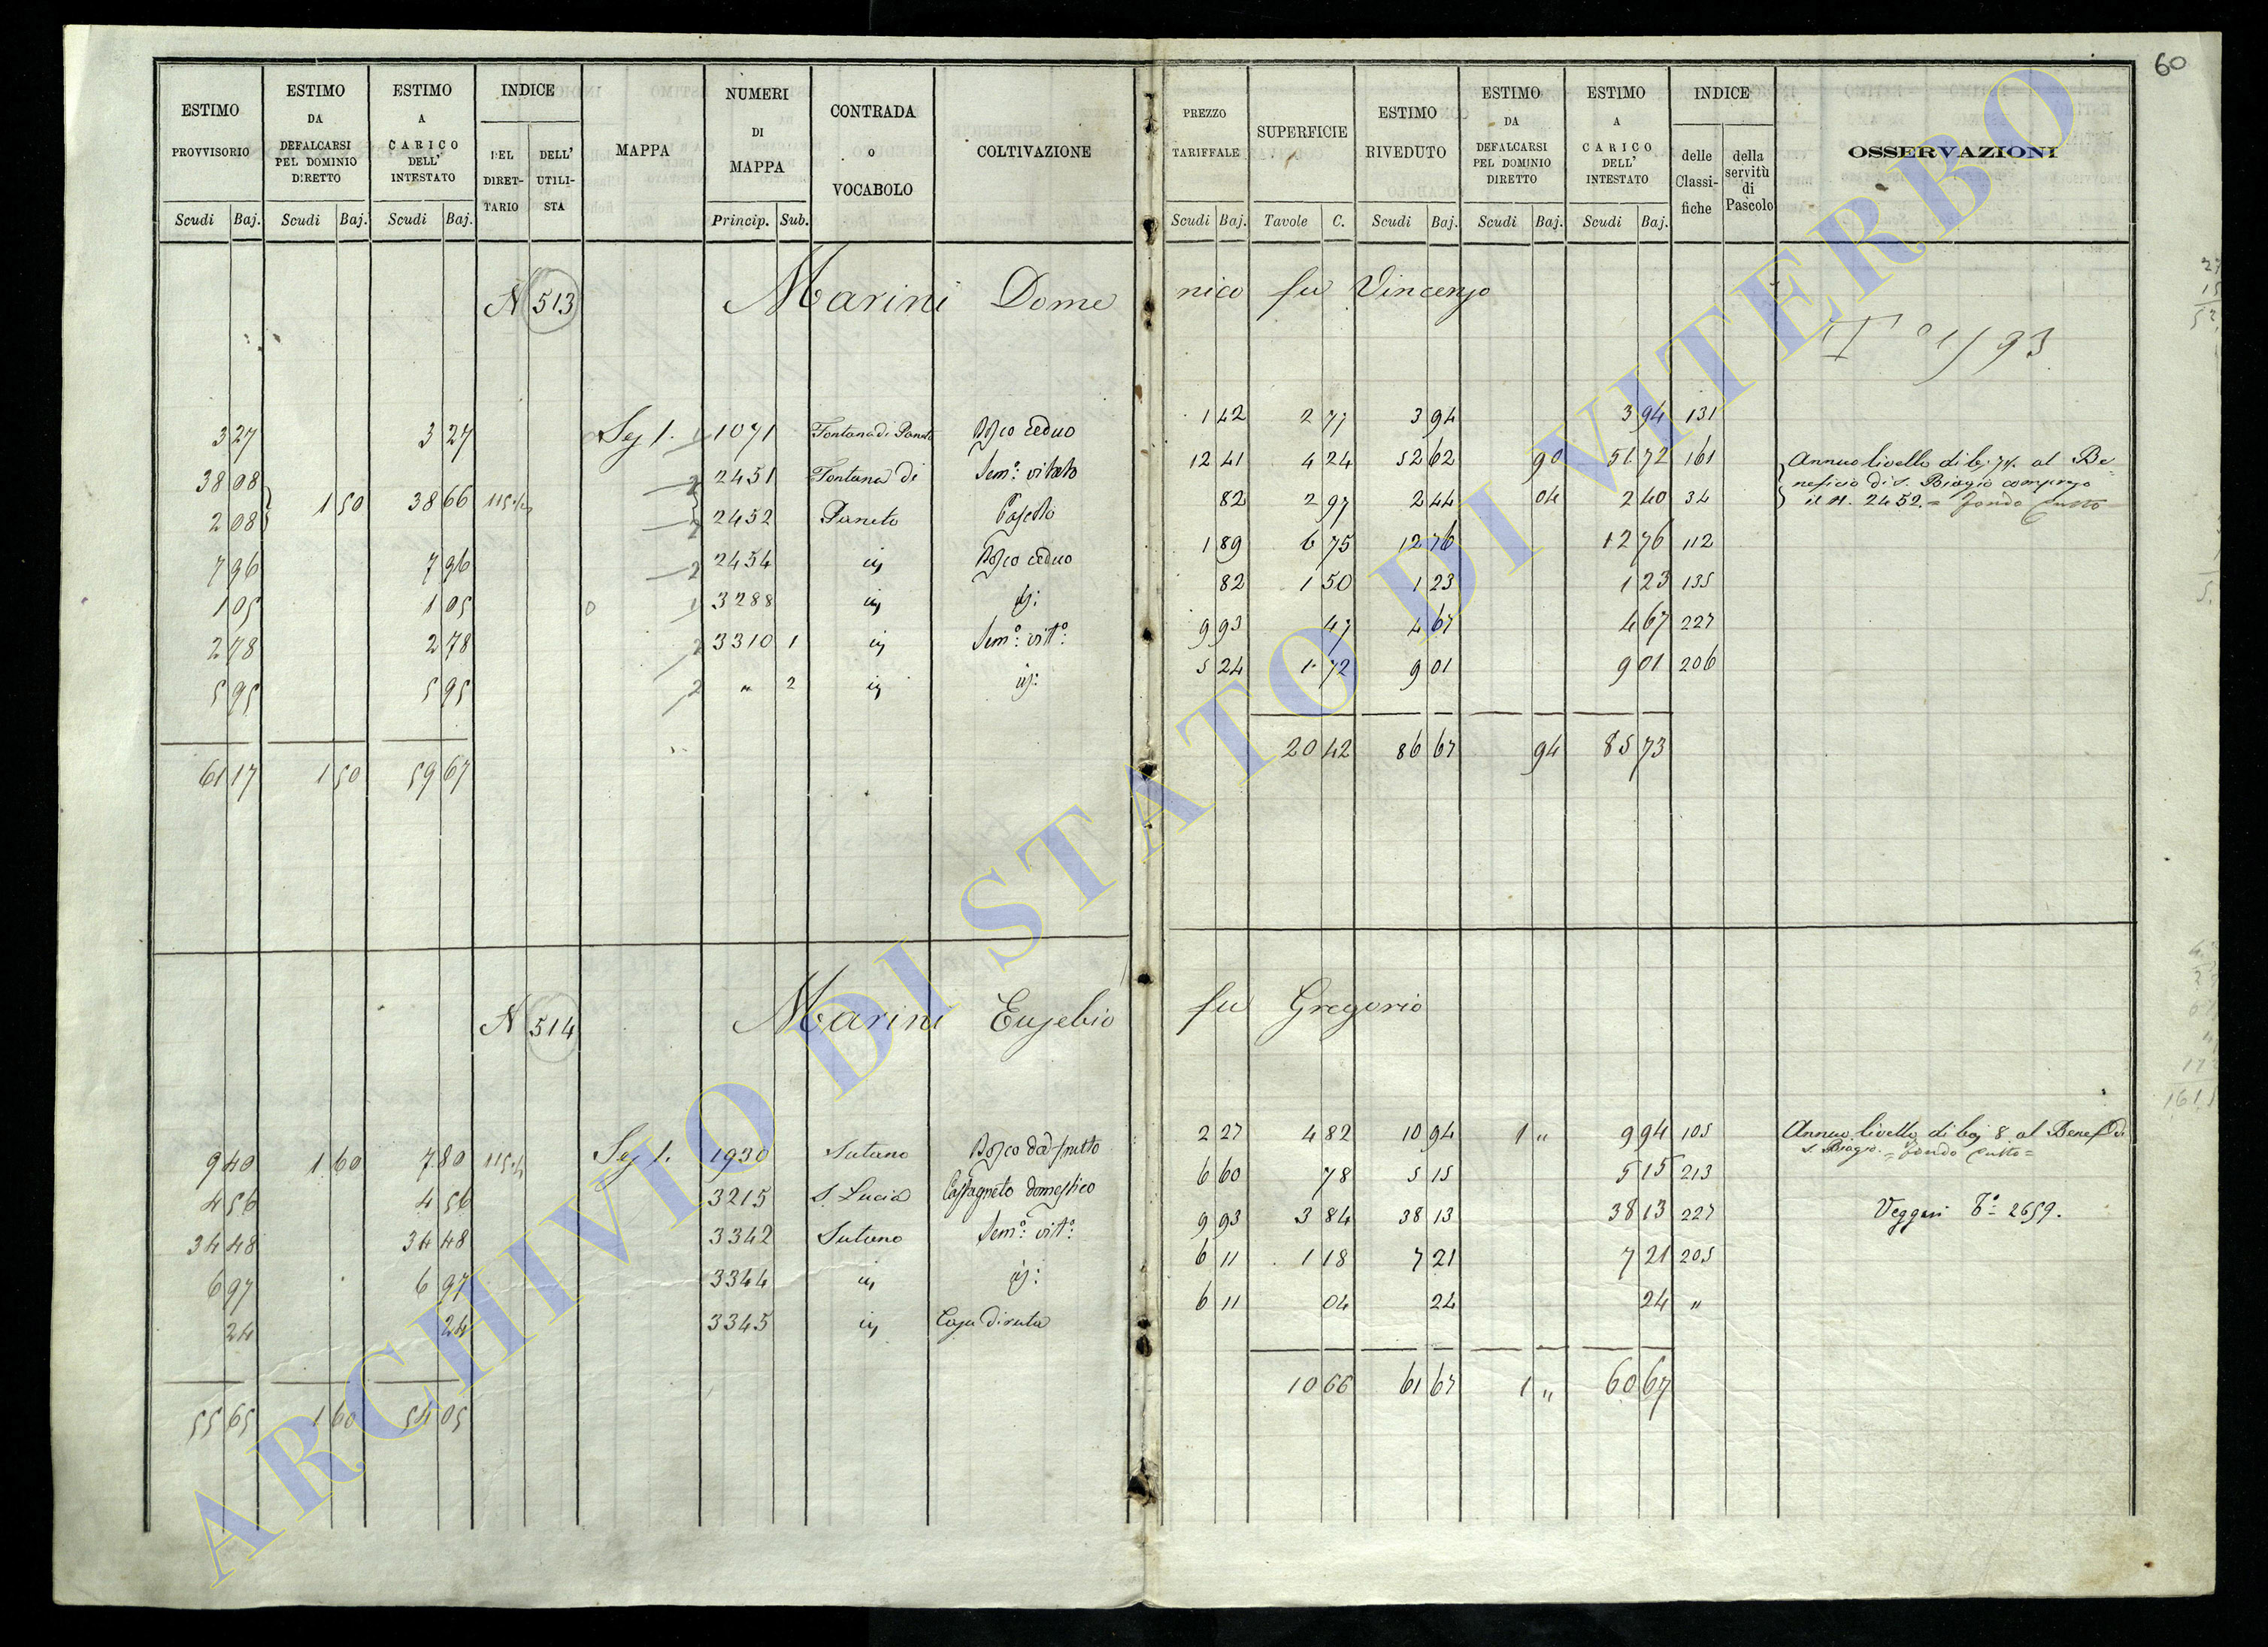 60
ESTIMO PROVVISORIO
ESTIMO DA DEFALCARSI PEL DOMINIO DIRETTO
ESTIMO A CARICO DELL' INTESTATO
INDICE
DEL DIRETTARIO
DELL' UTILISTA
MAPPA
NUMERI DI MAPPA
CONTRADA O VOCABOLO
COLTIVAZIONE
PREZZO TARIFFALE
SUPERFICIE
ESTIMO RIVEDUTO
ESTIMO DA DEFALCARSI PEL DOMINIO DIRETTO
ESTIMO A CARICO DELL' INTESTATO
INDICE
delle Classifiche
della servitù di Pascolo
OSSERVAZIONI
Scudi Baj. Scudi Baj. Scudi Baj. Princip. Sub. Scudi Baj. Tavole C. Scudi Baj. Scudi Baj. Scudi Baj.
N 513 Marini Domenico fu Vincenzo
3 27 3 27 Sez 1. 1 1071 Fontana di Paneto Bosco ceduo 1 42 2 77 3 94 3 94 131
38 08 2 2451 Fontana di Sem.o vitato 12 41 4 24 52 62 90 51 72 161 Annuo livello di bj. 74. al Be
2 08 1 50 38 66 2 2452 Paneto Pascolo 82 2 97 2 44 04 2 40 34 neficio di S. Biagio compreso
il N. 2452. = fondo tutto
7 96 7 96 2 2454 ivi Bosco ceduo 1 89 6 75 12 76 12 76 112
1 05 1 05 1 3288 ivi id: 82 1 50 1 23 1 23 135
2 78 2 78 2 3310 1 ivi Sem.o vit.o: 9 93 47 4 67 4 67 227
5 95 5 95 2 " 2 ivi id: 5 24 1 72 9 01 9 01 206
61 17 1 50 59 67 20 42 86 67 94 85 73
N 514 Marini Eusebio fu Gregorio
9 40 1 60 7 80 Sez 1. 1930 Sutano Bosco da frutto 2 27 4 82 10 94 1 " 9 94 105 Annuo livello di baj 8 al Benef. di
S. Biagio. = fondo tutto =
4 56 4 56 3215 S. Lucia Castagneto domestico 6 60 78 5 15 5 15 213
34 48 34 48 3342 Sutano Sem.o vit.o: 9 93 3 84 38 13 38 13 227 Veggasi T.o 2659.
6 97 6 97 3344 ivi id: 6 11 1 18 7 21 7 21 205
24 24 3345 ivi Casa diruta 6 11 04 24 24 "
55 65 1 60 54 05 10 66 61 67 1 " 60 67
ARCHIVIO DI STATO DI VITERBO